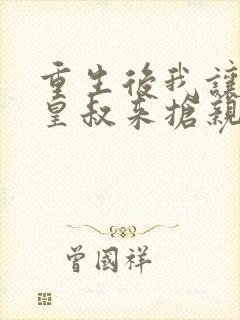 重生後我讓
皇叔來搶親
曾國祥